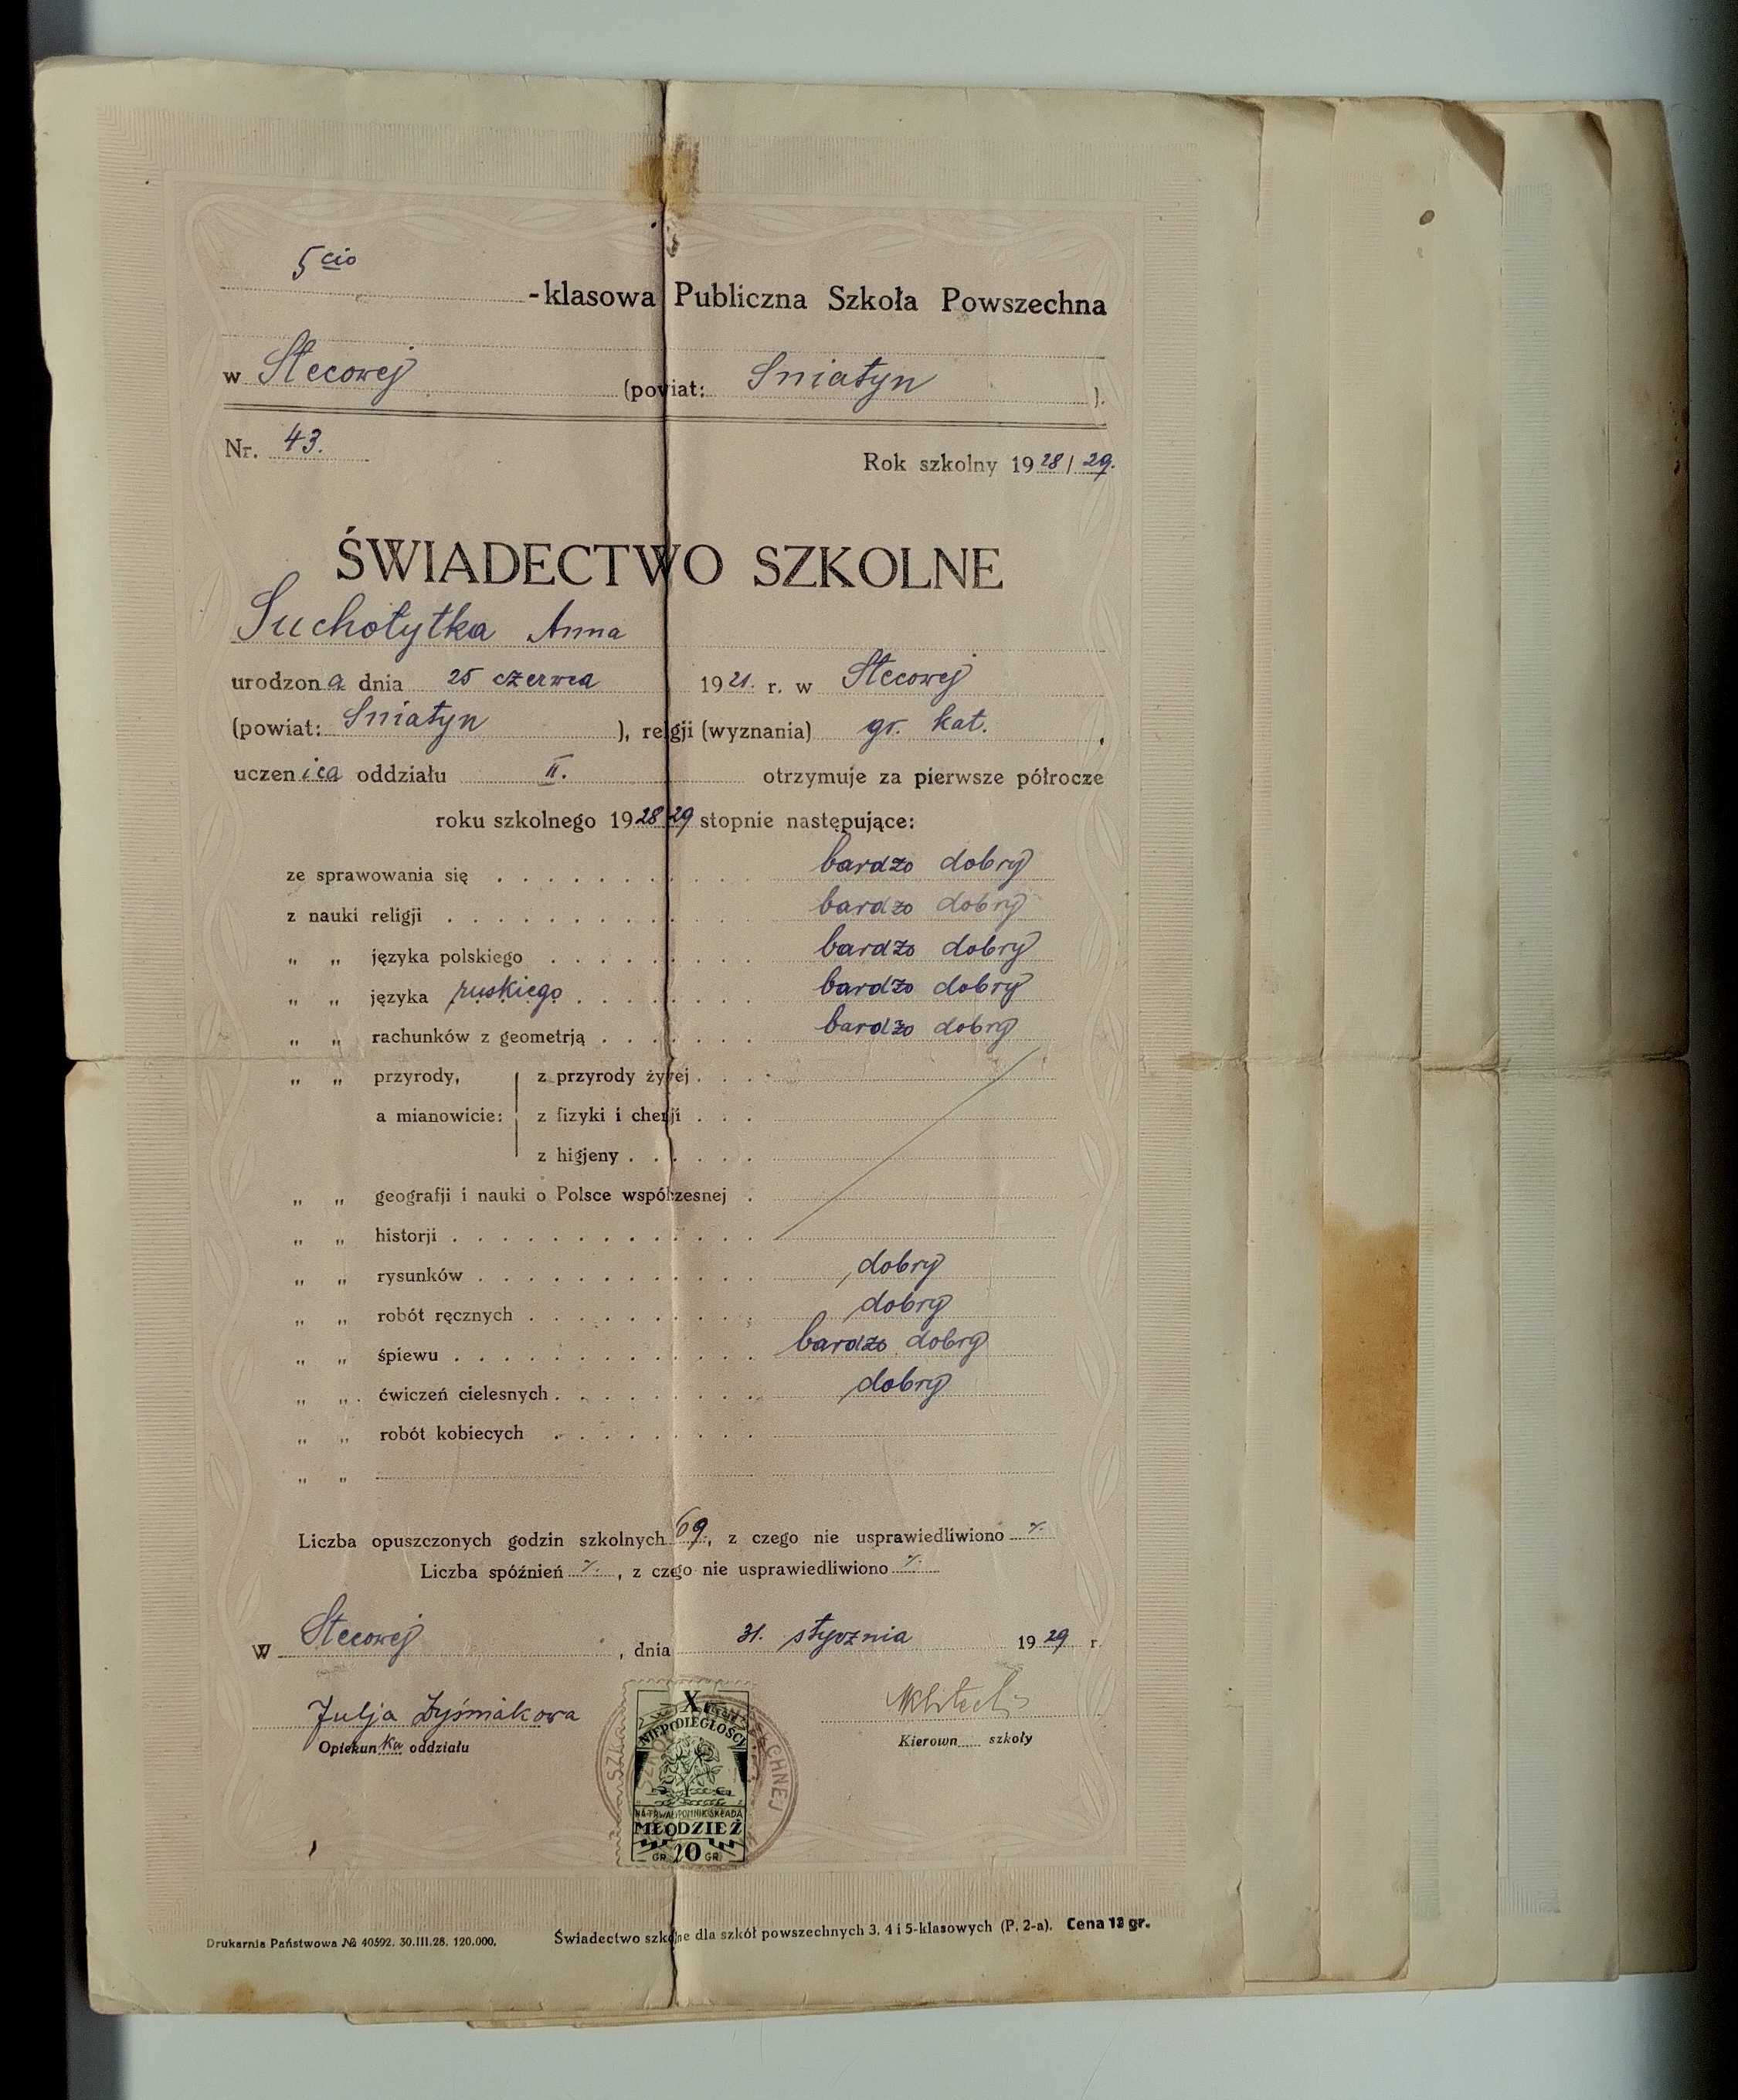 5cio -klasowa Publiczna Szkoła Powszechna
w Stecowej (powiat: Sniatyn ).
Nr. 43. Rok szkolny 1928/29.
ŚWIADECTWO SZKOLNE
Suchołytka Anna
urodzona dnia 25 czerwca 1921. r. w Stecowej
(powiat: Sniatyn ), religji (wyznania) gr. kat. ,
uczenica oddziału II. otrzymuje za pierwsze półrocze
roku szkolnego 1928/29 stopnie następujące:
ze sprawowania się . . . . . . . . . . bardzo dobry
z nauki religji . . . . . . . . . . bardzo dobry
„ „ języka polskiego . . . . . . . . . bardzo dobry
„ „ języka ruskiego . . . . . . . . bardzo dobry
„ „ rachunków z geometrją . . . . . . . bardzo dobry
„ „ przyrody, z przyrody żywej . . .
a mianowicie: z fizyki i chemji . . .
z higjeny . . . . . .
„ „ geografji i nauki o Polsce współczesnej .
„ „ historji . . . . . . . . . . . . .
„ „ rysunków . . . . . . . . . . . . dobry
„ „ robót ręcznych . . . . . . . . . . dobry
„ „ śpiewu . . . . . . . . . . . . . bardzo dobry
„ „ ćwiczeń cielesnych . . . . . . . . . dobry
„ „ robót kobiecych . . . . . . . . .
„ „
Liczba opuszczonych godzin szkolnych 69, z czego nie usprawiedliwiono %.
Liczba spóźnień %. , z czego nie usprawiedliwiono %.
W Stecowej , dnia 31. stycznia 1929 r.
Julja
Opiekunka oddziału
Kierown szkoły
X
NIEPODLEGŁOŚCI
NA TRWAŁY POMNIK SKŁADA
MŁODZIEŻ
GR. 20 GR.
Drukarnia Państwowa № 40592. 30.III.28. 120.000.
Świadectwo szkolne dla szkół powszechnych 3, 4 i 5-klasowych (P. 2-a). Cena 12 gr.